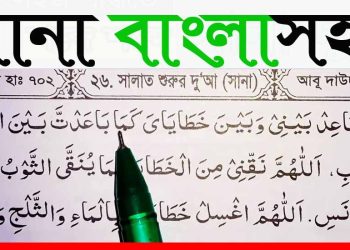 ানা বাংলাসহ
হাঃ ৭০২ ২৬. সালাত শুরুর দু'আ (সানা) আবূ দাউদ
اعِدْ بَيْنِيْ وَبَيْنَ خَطَايَايَ كَمَا بَاعَدْتَّ بَيْنَ
بِ. اَللّٰهُمَّ نَقِّنِيْ مِنَ الْخَطَايَا يُنَقَّى الثَّوْبُ
نَسِ. اَللّٰهُمَّ اغْسِلْ خَطَايَا بِالْمَاءِ وَالثَّلْجِ